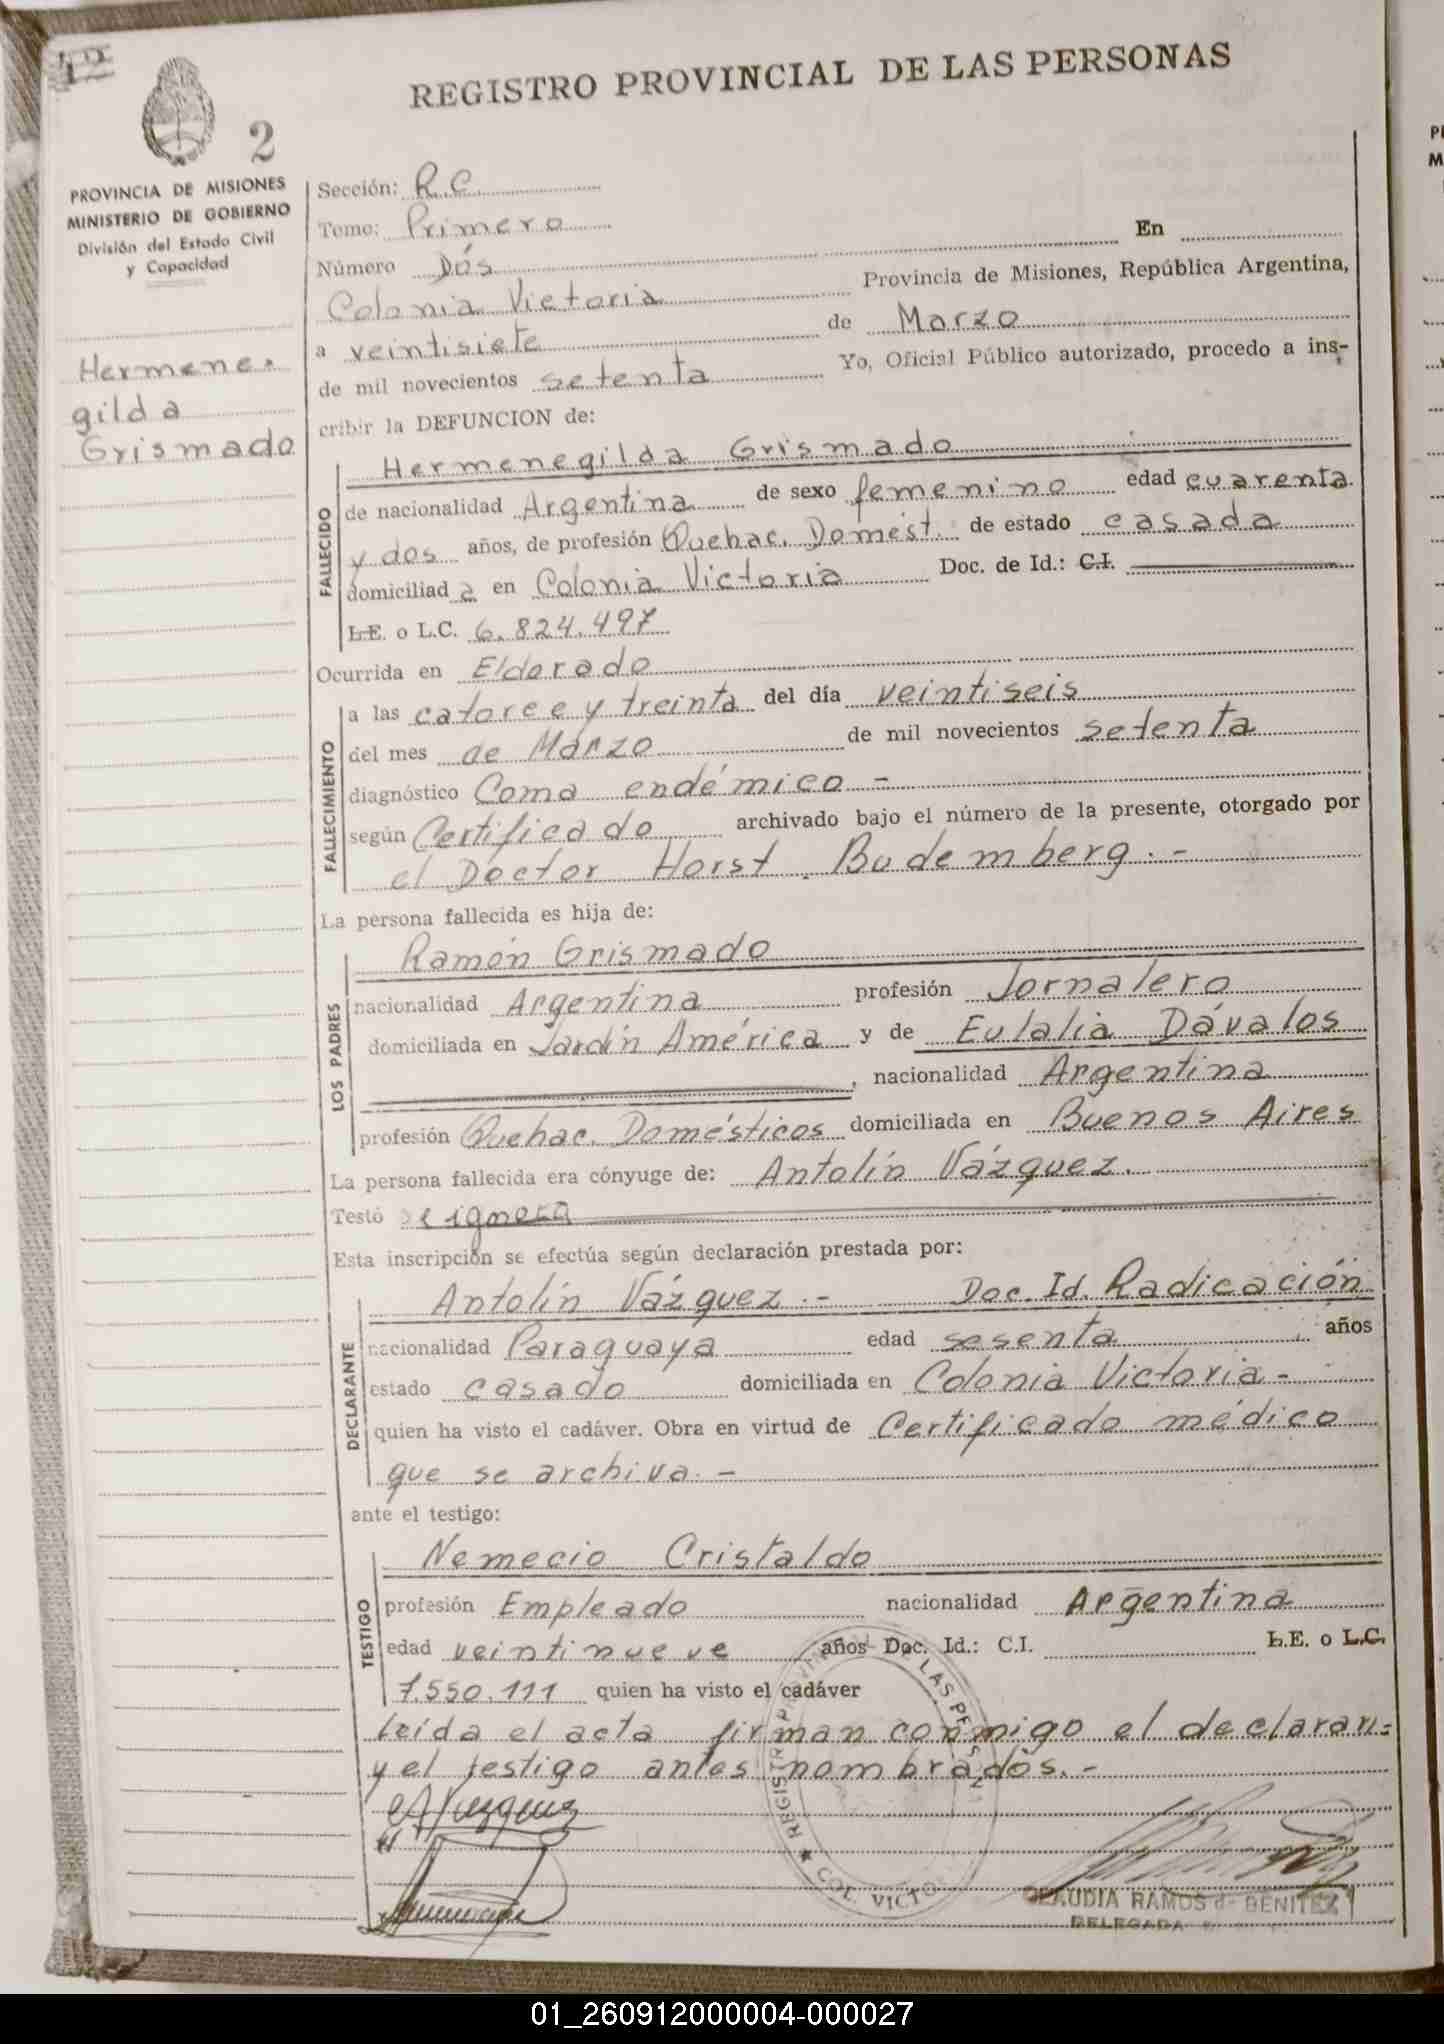 REGISTRO PROVINCIAL DE LAS PERSONAS
2
PROVINCIA DE MISIONES
MINISTERIO DE GOBIERNO
División del Estado Civil
y Capacidad
Hermene-
gilda
Grismado
Sección: R.C.
Tomo: Primero
Número Dós En
Colonia Victoria Provincia de Misiones, República Argentina,
a veintisiete de Marzo
de mil novecientos setenta Yo, Oficial Público autorizado, procedo a ins-
cribir la DEFUNCION de:
FALLECIDO
Hermenegilda Grismado
de nacionalidad Argentina de sexo femenino edad cuarenta
y dos años, de profesión Quehac. Domést. de estado casada
domiciliad a en Colonia Victoria Doc. de Id.: C.I.
L.E. o L.C. 6.824.497
Ocurrida en Eldorado
FALLECIMIENTO
a las catorce y treinta del día veintiseis
del mes de Marzo de mil novecientos setenta
diagnóstico Coma endémico -
según Certificado archivado bajo el número de la presente, otorgado por
el Doctor Horst Budemberg. -
La persona fallecida es hija de:
LOS PADRES
Ramón Grismado
nacionalidad Argentina profesión Jornalero
domiciliada en Jardín América y de Eulalia Dávalos
, nacionalidad Argentina
profesión Quehac. Domésticos domiciliada en Buenos Aires
La persona fallecida era cónyuge de: Antolín Vázquez.
Testó se ignora
Esta inscripción se efectúa según declaración prestada por:
DECLARANTE
Antolín Vázquez .- Doc. Id. Radicación
nacionalidad Paraguaya edad sesenta años
estado casado domiciliada en Colonia Victoria -
quien ha visto el cadáver. Obra en virtud de Certificado médico
que se archiva. -
ante el testigo:
TESTIGO
Nemecio Cristaldo
profesión Empleado nacionalidad Argentina
edad veintinueve años Doc. Id.: C.I. L.E. o L.C.
7.550.111 quien ha visto el cadáver
Leída el acta firman conmigo el declaran=
y el testigo antes nombrados. -
A Vazquez
REGISTRO PROVINCIAL LAS PERSONAS
COL. VICTO
CLAUDIA RAMOS de BENITEZ
DELEGADA
01_260912000004-000027